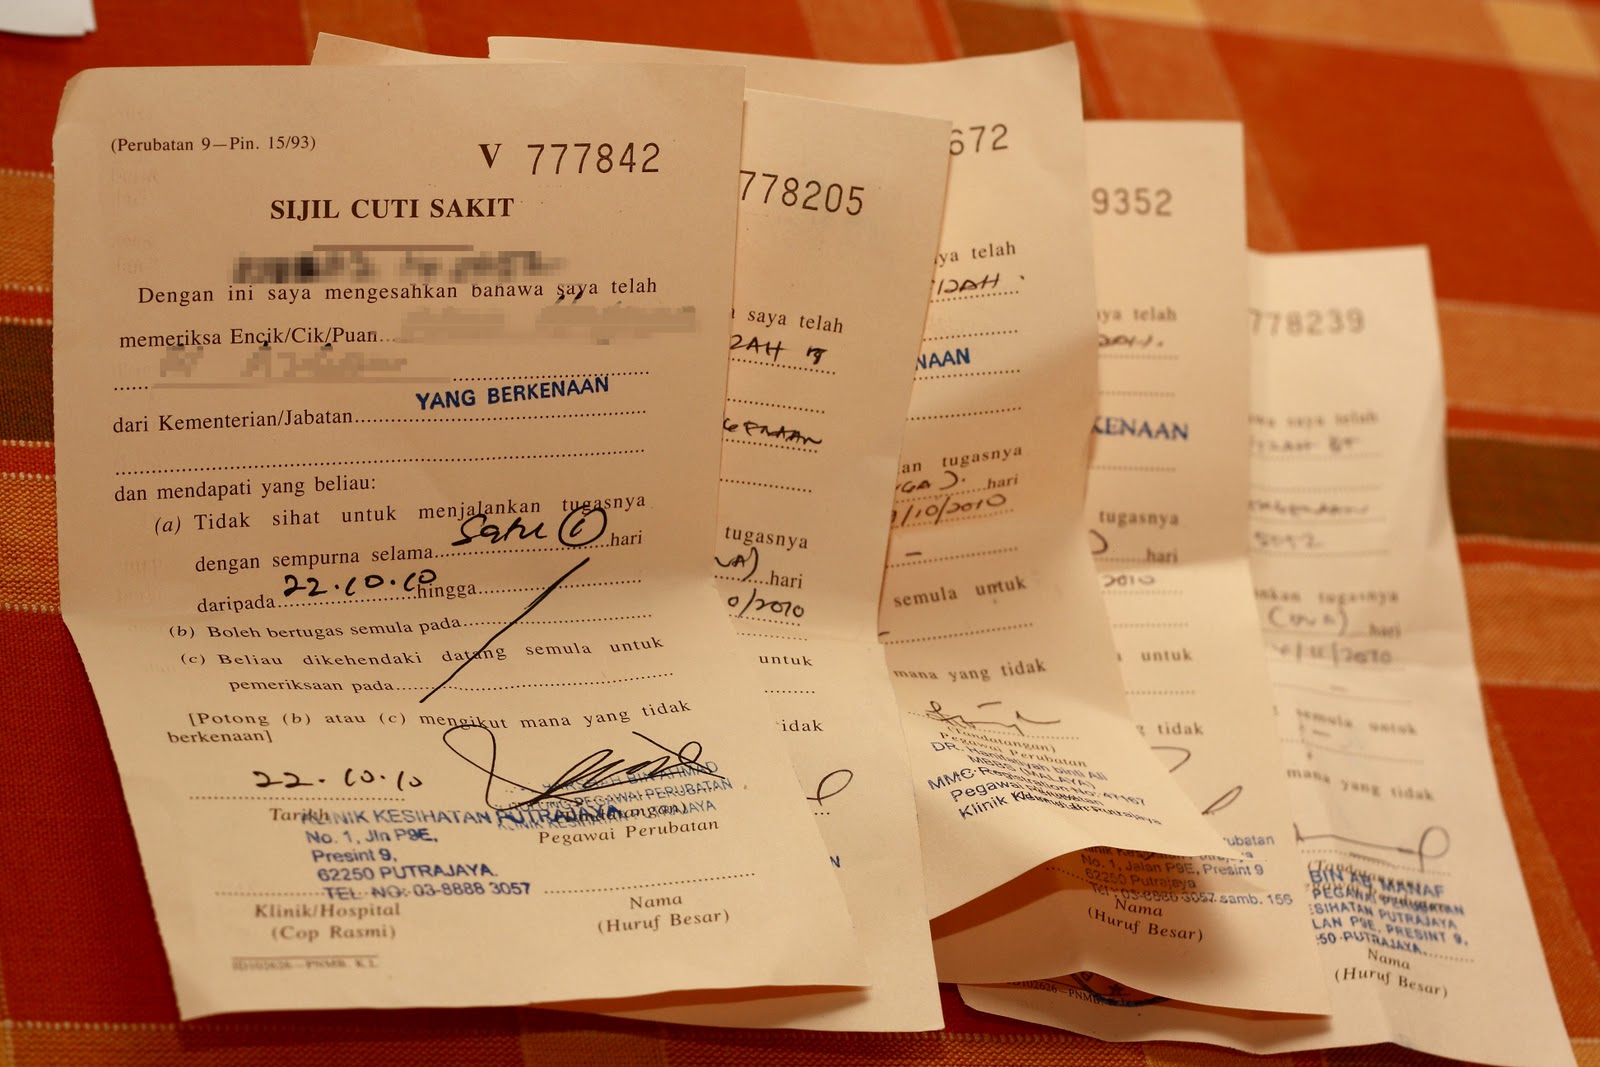 (Perubatan 9—Pin. 15/93)
V 777842
SIJIL CUTI SAKIT
Dengan ini saya mengesahkan bahawa saya telah
memeriksa Encik/Cik/Puan
YANG BERKENAAN
dari Kementerian/Jabatan
dan mendapati yang beliau:
(a) Tidak sihat untuk menjalankan tugasnya
dengan sempurna selama Satu (1) hari
daripada 22.10.10 hingga
(b) Boleh bertugas semula pada
(c) Beliau dikehendaki datang semula untuk
pemeriksaan pada
[Potong (b) atau (c) mengikut mana yang tidak
berkenaan]
22.10.10
Tarikh
KLINIK KESIHATAN PUTRAJAYA
No. 1, Jln P9E,
Presint 9,
62250 PUTRAJAYA.
TEL NO: 03-8888 3057
BIN AHMAD
PEGAWAI PERUBATAN
Pegawai Perubatan
Klinik/Hospital
(Cop Rasmi)
Nama
(Huruf Besar)
778205
saya telah
ZAH
tugasnya
hari
0/2010
untuk
672
ya telah
IZAH
NAAN
an tugasnya
hari
/10/2010
semula untuk
mana yang tidak
(Tandatangan)
Pegawai Perubatan
DR. Hanifatiyah binti Ali
MBBS (MALAYA)
MMC Registration No: 47167
Pegawai Perubatan
Klinik Kesihatan Putrajaya
9352
ya telah
KENAAN
tugasnya
hari
2010
untuk
tidak
No. 1, Jalan P9E, Presint 9
62250 Putrajaya
Tel: 03-8886 3057 samb. 156
Nama
(Huruf Besar)
778239
saya telah
tugasnya
(DUA) hari
semula untuk
mana yang tidak
BIN AB. MANAF
PEGAWAI PERUBATAN
SIHATAN PUTRAJAYA
LAN P9E, PRESINT 9,
50 PUTRAJAYA
Nama
(Huruf Besar)